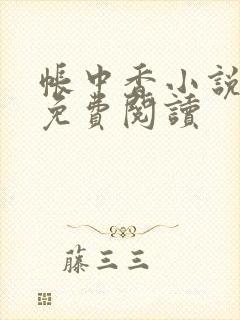 帳中香小說
免費閱讀
藤三三